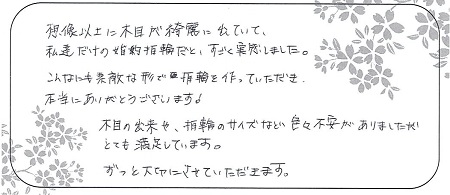 想像以上に木目が綺麗に出ていて、
私達だけの婚約指輪だと、すごく実感しました。
こんなにも素敵な形で指輪を作っていただき
本当にありがとうございます!
木目の出来や、指輪のサイズなど色々不安がありましたが
とても満足しています。
ずっと大切にさせていただきます。